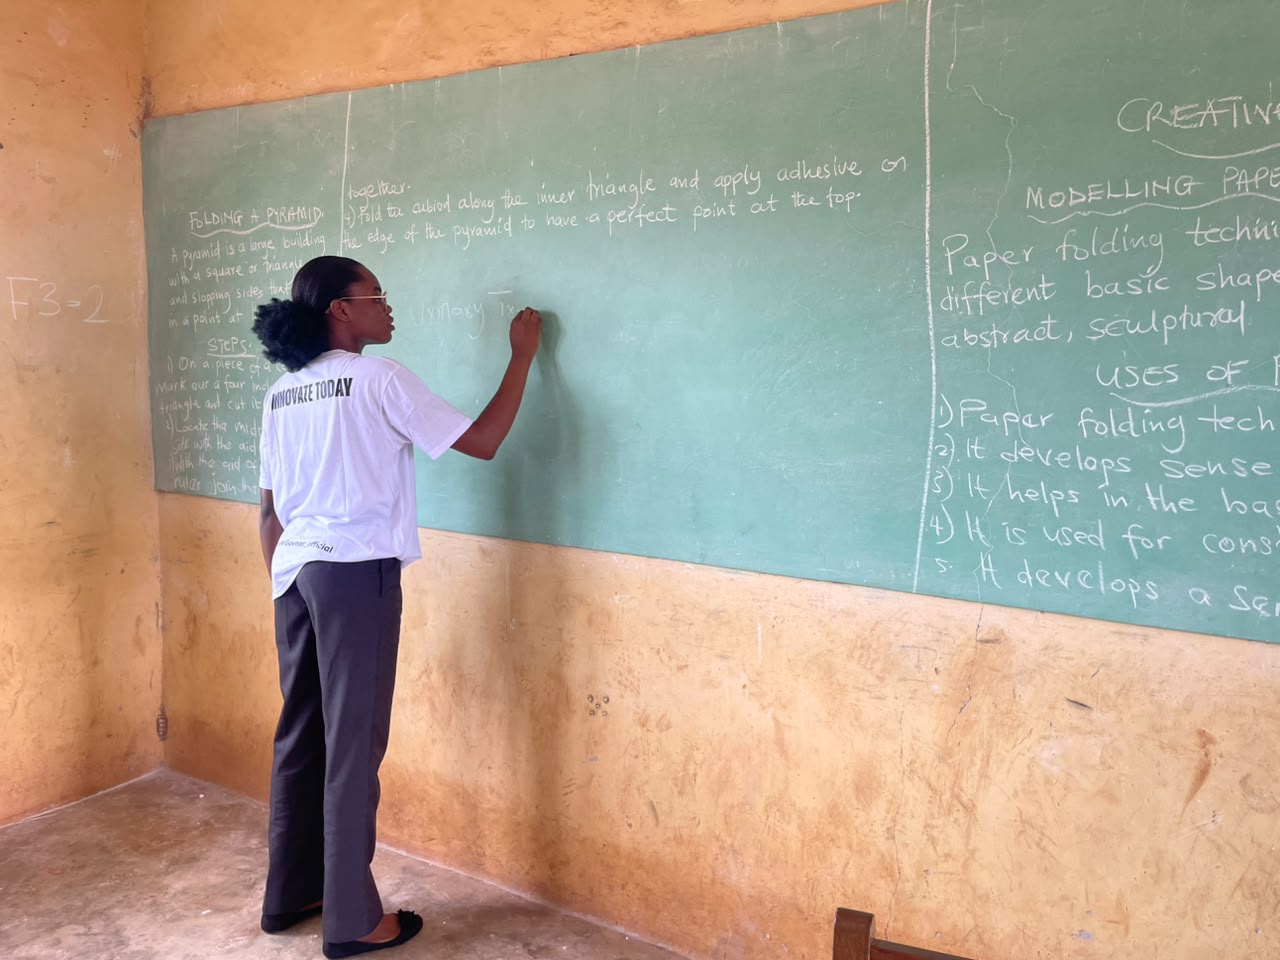 F3=2
FOLDING A PYRAMID.
A pyramid is a large building
with a square or triangle
and slopping sides that
in a point at
STEPS.
1) On a piece of
mark our a four
triangle and cut it
2) Locate the mid
side with the aid
with the aid of
ruler join the
together.
4) Fold the cuboid along the inner triangle and apply adhesive on
the edge of the pyramid to have a perfect point at the top.
CREATIN
MODELLING PAPE
Paper folding techni
different basic shape
abstract, sculptural
USES OF
1) Paper folding tech
2) It develops sense
3) It helps in the bas
4) It is used for cons
5. It develops a sen
INNOVATE TODAY
official